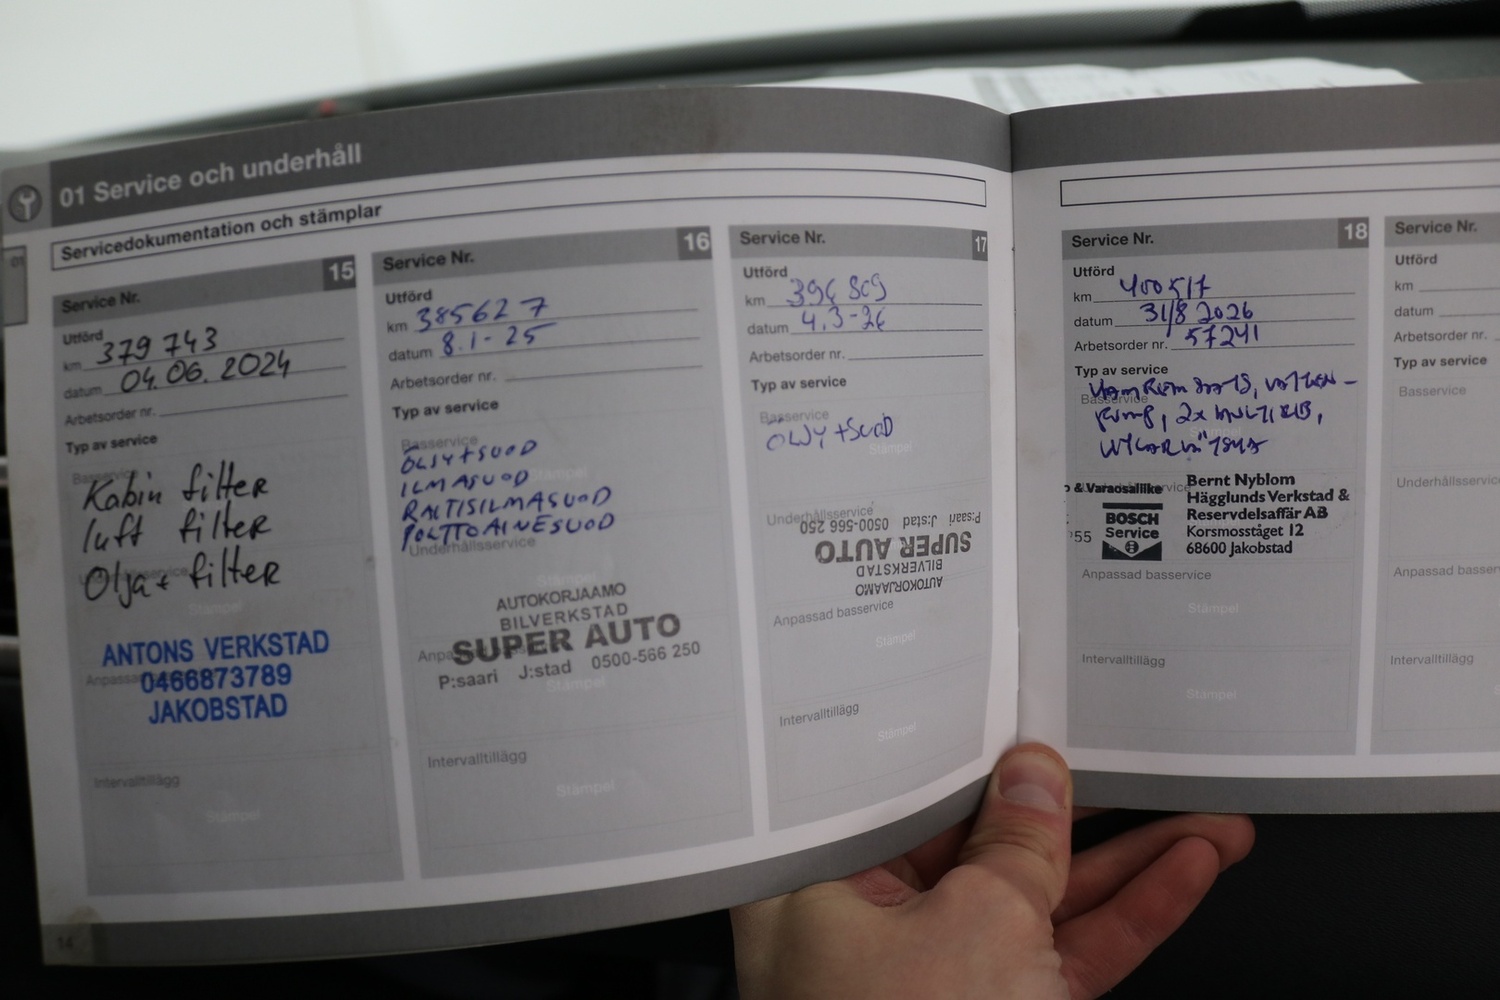 01 Service och underhåll
Servicedokumentation och stämplar
01
Service Nr. 15
Utförd
km 379 743
datum 04.06.2024
Arbetsorder nr.
Typ av service
Basservice
Kabin filter
luft filter
Olja + filter
Stämpel
ANTONS VERKSTAD
0466873789
JAKOBSTAD
Intervalltillägg
Stämpel
14
Service Nr. 16
Utförd
km 385627
datum 8.1-25
Arbetsorder nr.
Typ av service
Basservice
ÖLJY+SUOD
Stämpel
ILMASUOD
RAITISILMASUOD
POLTTOAINESUOD
Underhållsservice
Stämpel
AUTOKORJAAMO
BILVERKSTAD
SUPER AUTO
P:saari J:stad 0500-566 250
Stämpel
Intervalltillägg
Stämpel
Service Nr. 17
Utförd
km
datum 4.3-26
Arbetsorder nr.
Typ av service
Basservice
ÖLJY+SUOD
Stämpel
Underhållsservice
AUTOKORJAAMO
BILVERKSTAD
SUPER AUTO
P:saari J:stad 0500-566 250
Anpassad basservice
Stämpel
Intervalltillägg
Stämpel
Service Nr. 18
Utförd
km 400517
datum 31/8 2026
Arbetsorder nr. 57241
Typ av service
Basservice
KAMREM SATS, VATTEN-
PUMP, 2x MULTIRIB,
Stämpel
& Varaosaliike
BOSCH
Service
Bernt Nyblom
Hägglunds Verkstad &
Reservdelsaffär AB
Korsmosståget 12
68600 Jakobstad
55
Anpassad basservice
Stämpel
Intervalltillägg
Stämpel
Service Nr.
Utförd
km
datum
Arbetsorder nr.
Typ av service
Basservice
Underhållsservice
Anpassad basservice
Intervalltillägg